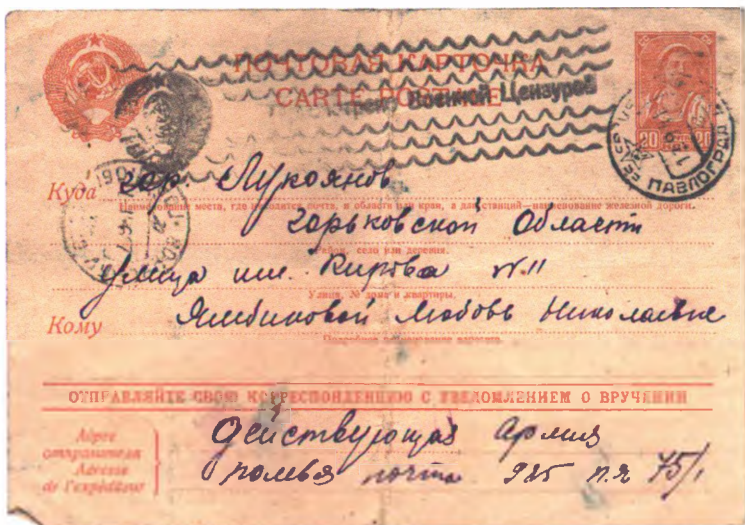 ПОЧТОВАЯ КАРТОЧКА
CARTE POSTALE
Военной Цензурой
20 20
ПАВЛОГРАД
Куда гор Лукоянов
Наименование места, где находится почта, и области или края, а для станций—наименование железной дороги.
Горьковской Области
Район, село или деревня.
улица им. Кирова N 11
Улица, № дома и квартиры.
Кому Ямбиковой Любовь Николаевне
Подробное наименование адресата
ОТПРАВЛЯЙТЕ СВОЮ КОРРЕСПОНДЕНЦИЮ С УВЕДОМЛЕНИЕМ О ВРУЧЕНИИ
Адрес отправителя
Adresse de l'expéditeur
Действующая Армия
полевая почта 925 п.я 75/1